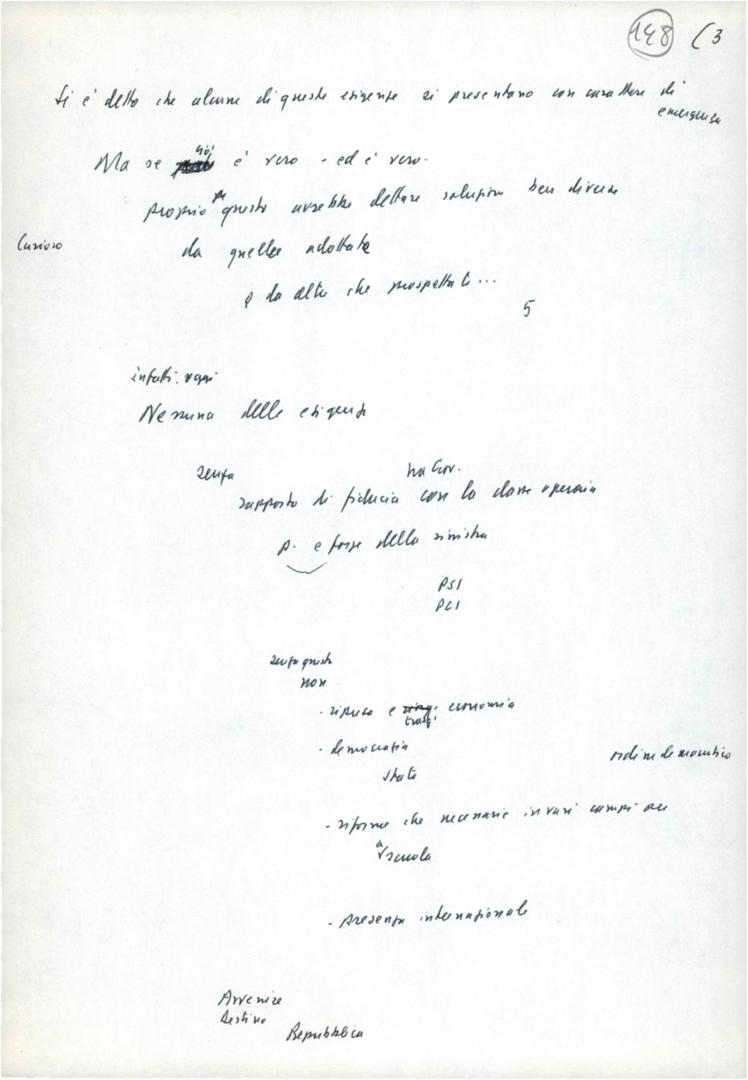 148 (3
Si è detto che alcune di queste esigenze si presentano con carattere di
emergenza
ciò
Ma se è vero - ed è vero -
proprio questo dovrebbe dettare soluzioni ben diverse
Curioso
da quelle adottate
e da altri che prospettati...
5
infatti. oggi
Nessuna delle esigenze
senza tra Gov.
rapporto di fiducia con la classe operaia
p. e forze della sinistra
PSI
PCI
senza questo
non
- ripresa e trasf. economia
- democrazia
ordine democratico
Stato
- riforme che necessarie in vari campi
a scuola
- presenza internazionale
Avvenire
Destino
Repubblica